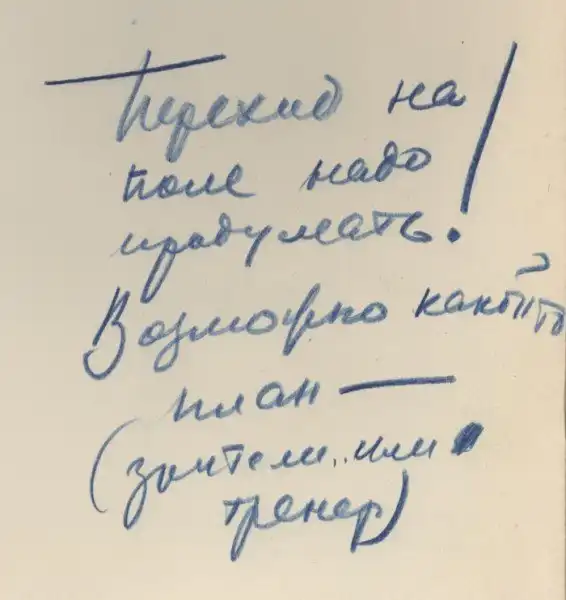 Переход на
поле надо
продумать!
Возможно какой то
план —
(зрители, или
тренер)